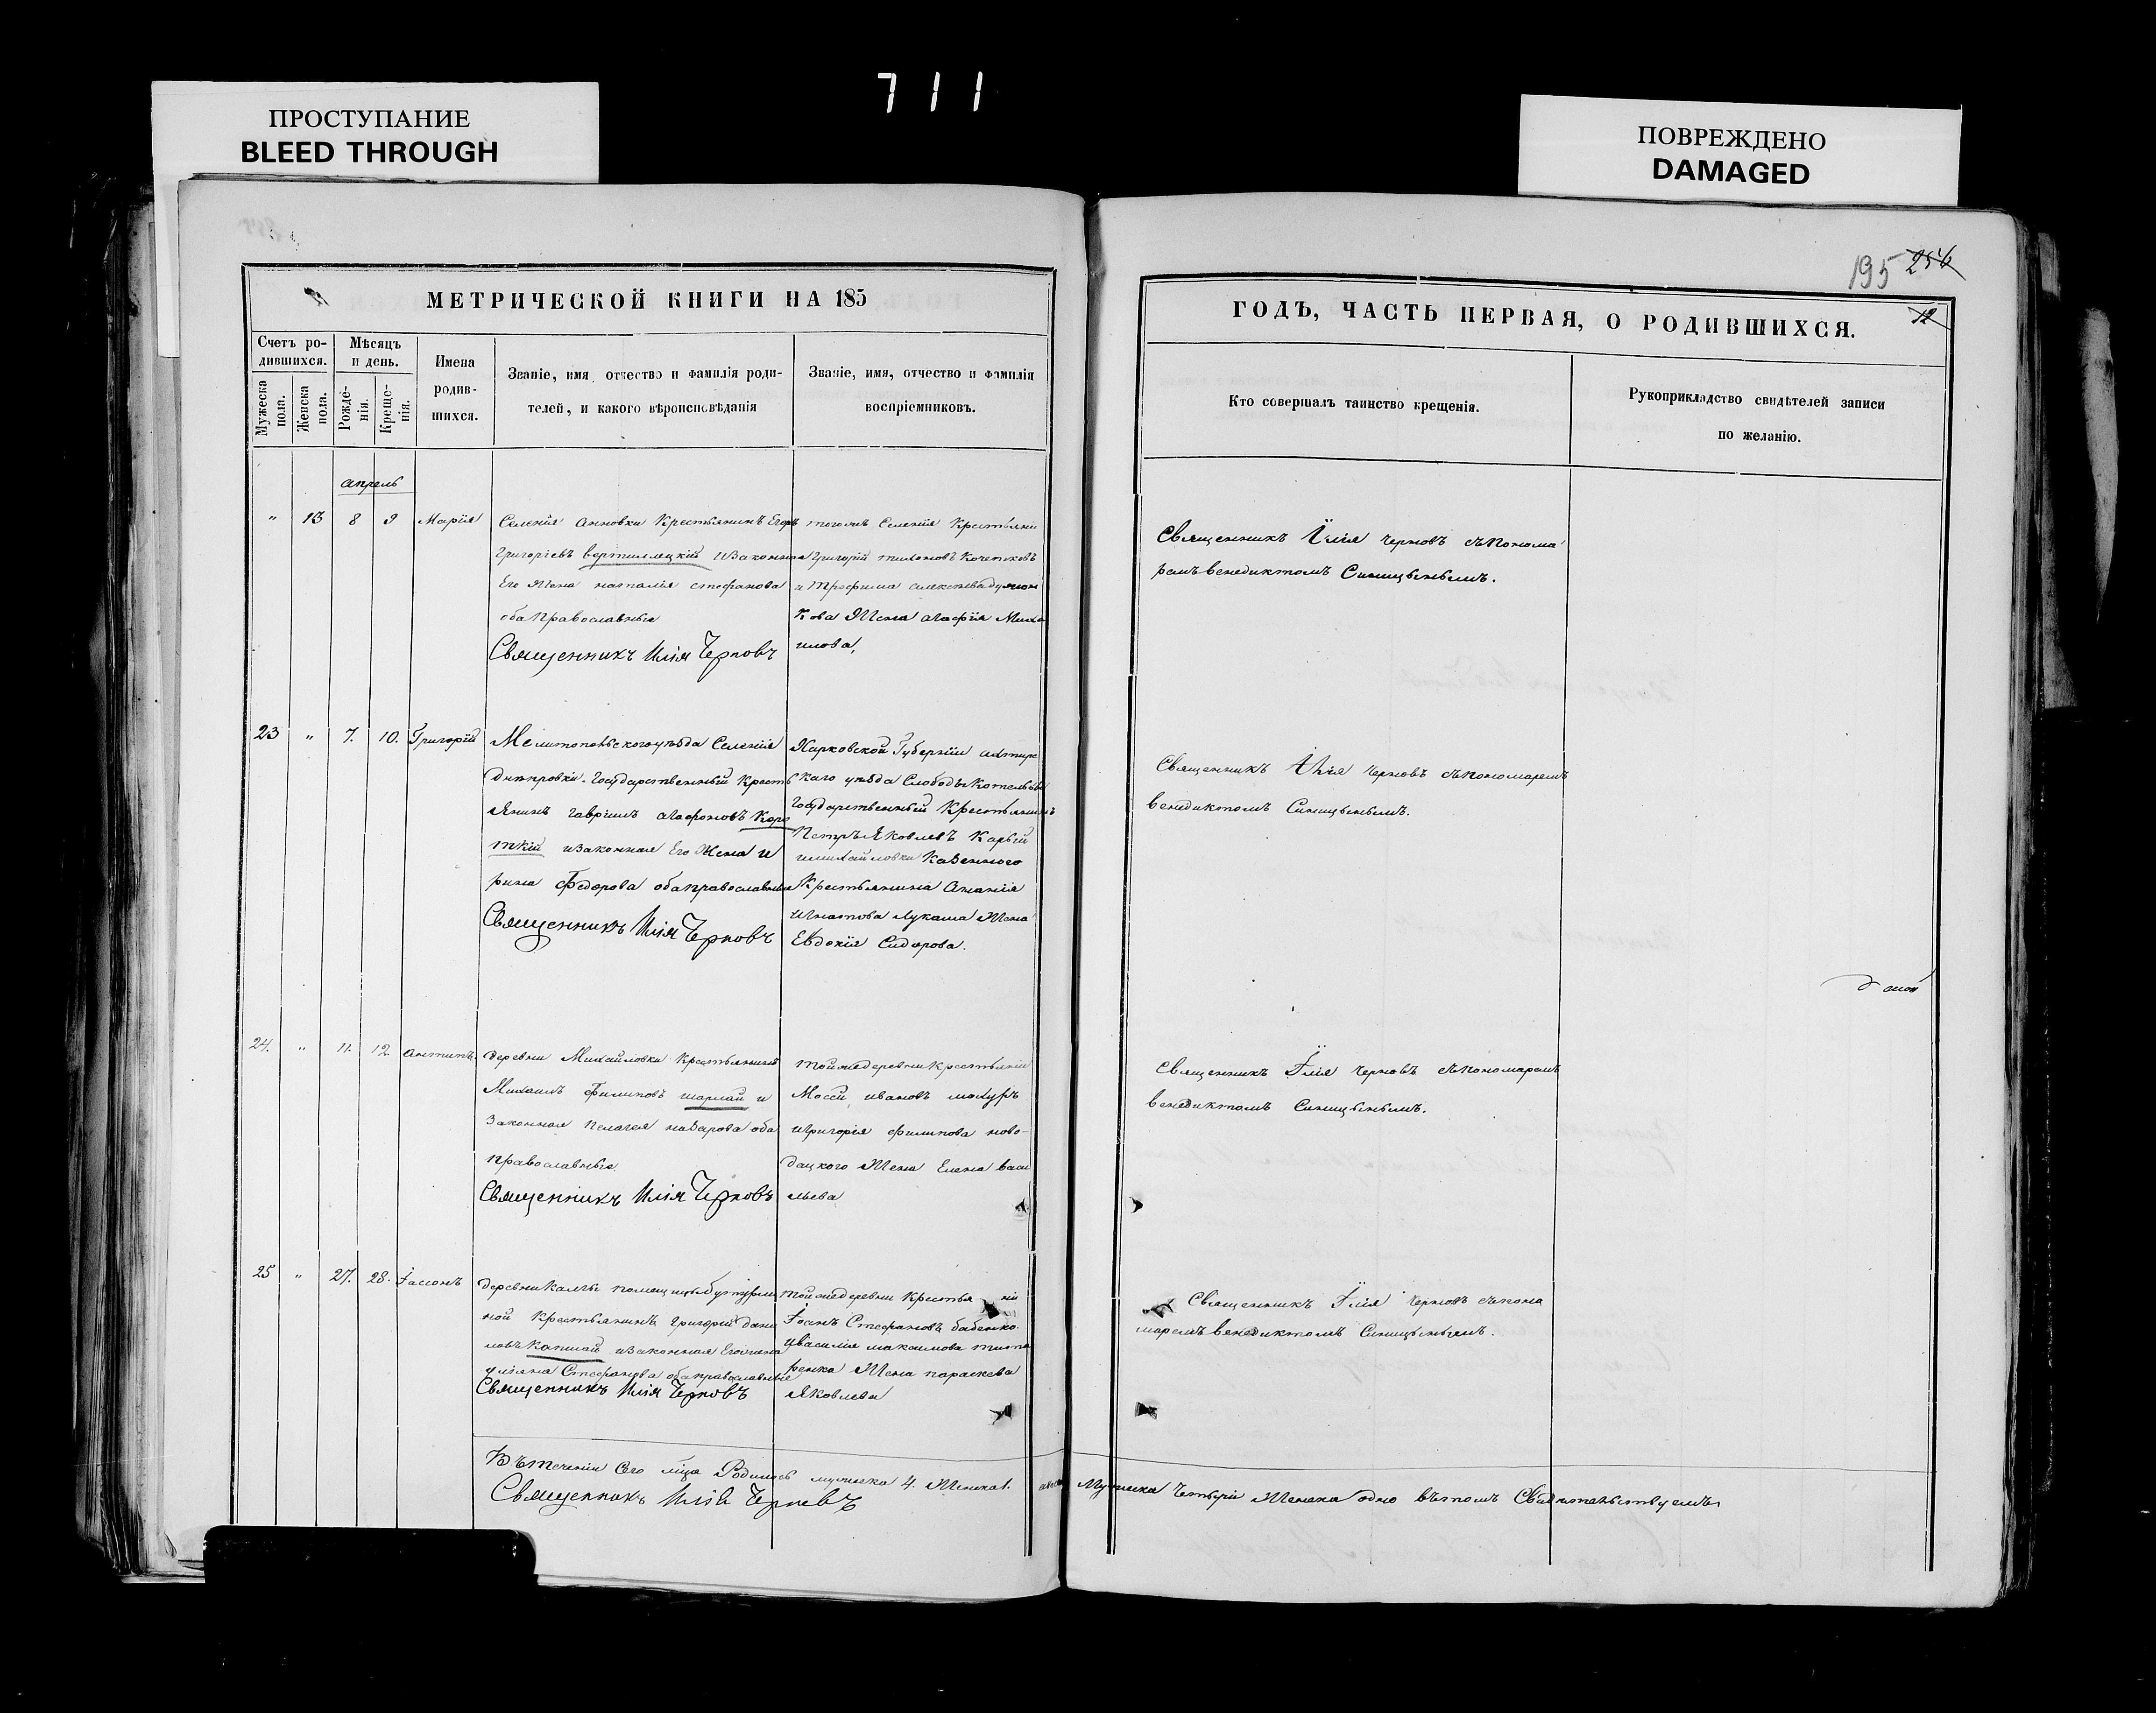 711
ПРОСТУПАНИЕ
BLEED THROUGH
ПОВРЕЖДЕНО
DAMAGED
195 256
МЕТРИЧЕСКОЙ КНИГИ НА 185
Счетъ ро-
дившихся.
Мужеска
пола.
Женска
пола.
Мѣсяцъ
и день.
Рожде-
нія.
Креще-
нія.
Имена
родив-
шихся.
Званіе, имя, отчество и фамилія роди-
телей, и какого вѣроисповѣданія
Званіе, имя, отчество и фамилія
воспріемниковъ.
ГОДЪ, ЧАСТЬ ПЕРВАЯ, О РОДИВШИХСЯ.
12
Кто совершалъ таинство крещенія.
Рукоприкладство свидѣтелей записи
по желанію.
апрель
" 13 8 9 Марія
Селенія Анновки Крестьянинъ Егоръ
Григоріевъ Вертилецкій и законная
Его Жена наталія стефанова
оба Православные
Священникъ Илія Черновъ
тогожъ Селенія Крестьяни
Григорій тихоновъ Кочетковъ
и Трофима алексеева
кова Жена агафія Миха
илова,
Священникъ Илія Черновъ съ понома
ремъ венедиктомъ Синицынымъ.
23 " 7. 10. Григорій
Мелитопольского уѣзда Селенія
Днѣпровки. Государственный Кресть
янинъ гавріилъ агафоновъ Коро
ткій и законная Его Жена и
рина Федорова оба православные
Священникъ Илія Черновъ
Харковской Губерніи ахтыр
каго уѣзда Слободы Котельвы
Государственный Крестьянинъ
Петръ Яковлевъ Карый
и михайловки Казенного
Крестьянина Ананія
Игнатова Лукаша Жена
Евдокія Сидорова.
Священникъ Илія Черновъ съ пономаремъ
венедиктомъ Синицынымъ.
24. " 11. 12. антипъ
деревни Михайловки Крестьянинъ
Михаилъ Филиповъ шарлай и
Законная пелагея назарова оба
православные
Священникъ Илія Черновъ
тойже деревни крестьяни
Мосей ивановъ мохуръ
и григорія филипова ново-
дацкого Жена Елена васи
льева
Священникъ Илія Черновъ съ пономаремъ
венедиктомъ Синицынымъ.
25 " 27. 28. Іасонъ
деревни помещицы Бутурли
ной Крестьянинъ григорій дани
ловъ Капшай и законная Его жена
уліяна Стефанова оба православные
Священникъ Илія Черновъ
тойже деревни Крестья нин
Іоанъ Стефановъ бабенко.
и василія максимова тита
ренка Жена параскева
Яковлева
Священникъ Илія Черновъ съ поно
маремъ венедиктомъ Синицынымъ.
Въ теченіи Сего м҃ца Родилось мужеска 4. Женска 1. Мужеска Четыри Женска одно въ томъ Свидетельствуемъ
Священникъ Илія Черновъ